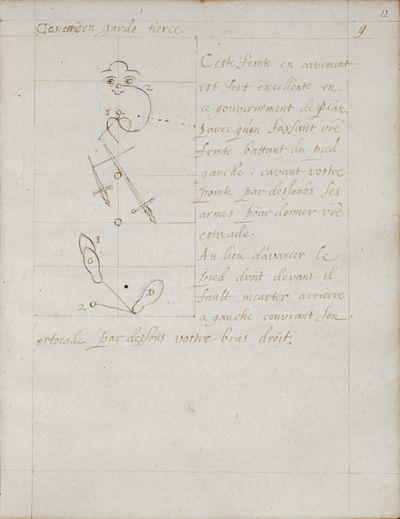 12
Cavement en garde tierce
9
Ceste feinte en cavement
est fort excellente en
ce gouvernement de plan
parce qu'en faisant vre
feinte battant du pied
gauche, cavant vostre
pointe par dessoubs ses
armes pour donner vre
estocade.
Au lieu d'avancer le
pied droit devant il
fault incarter arrierre
a gauche couvrant son
estocade par dessous vostre bras droit.
2
1
1
G
D
2